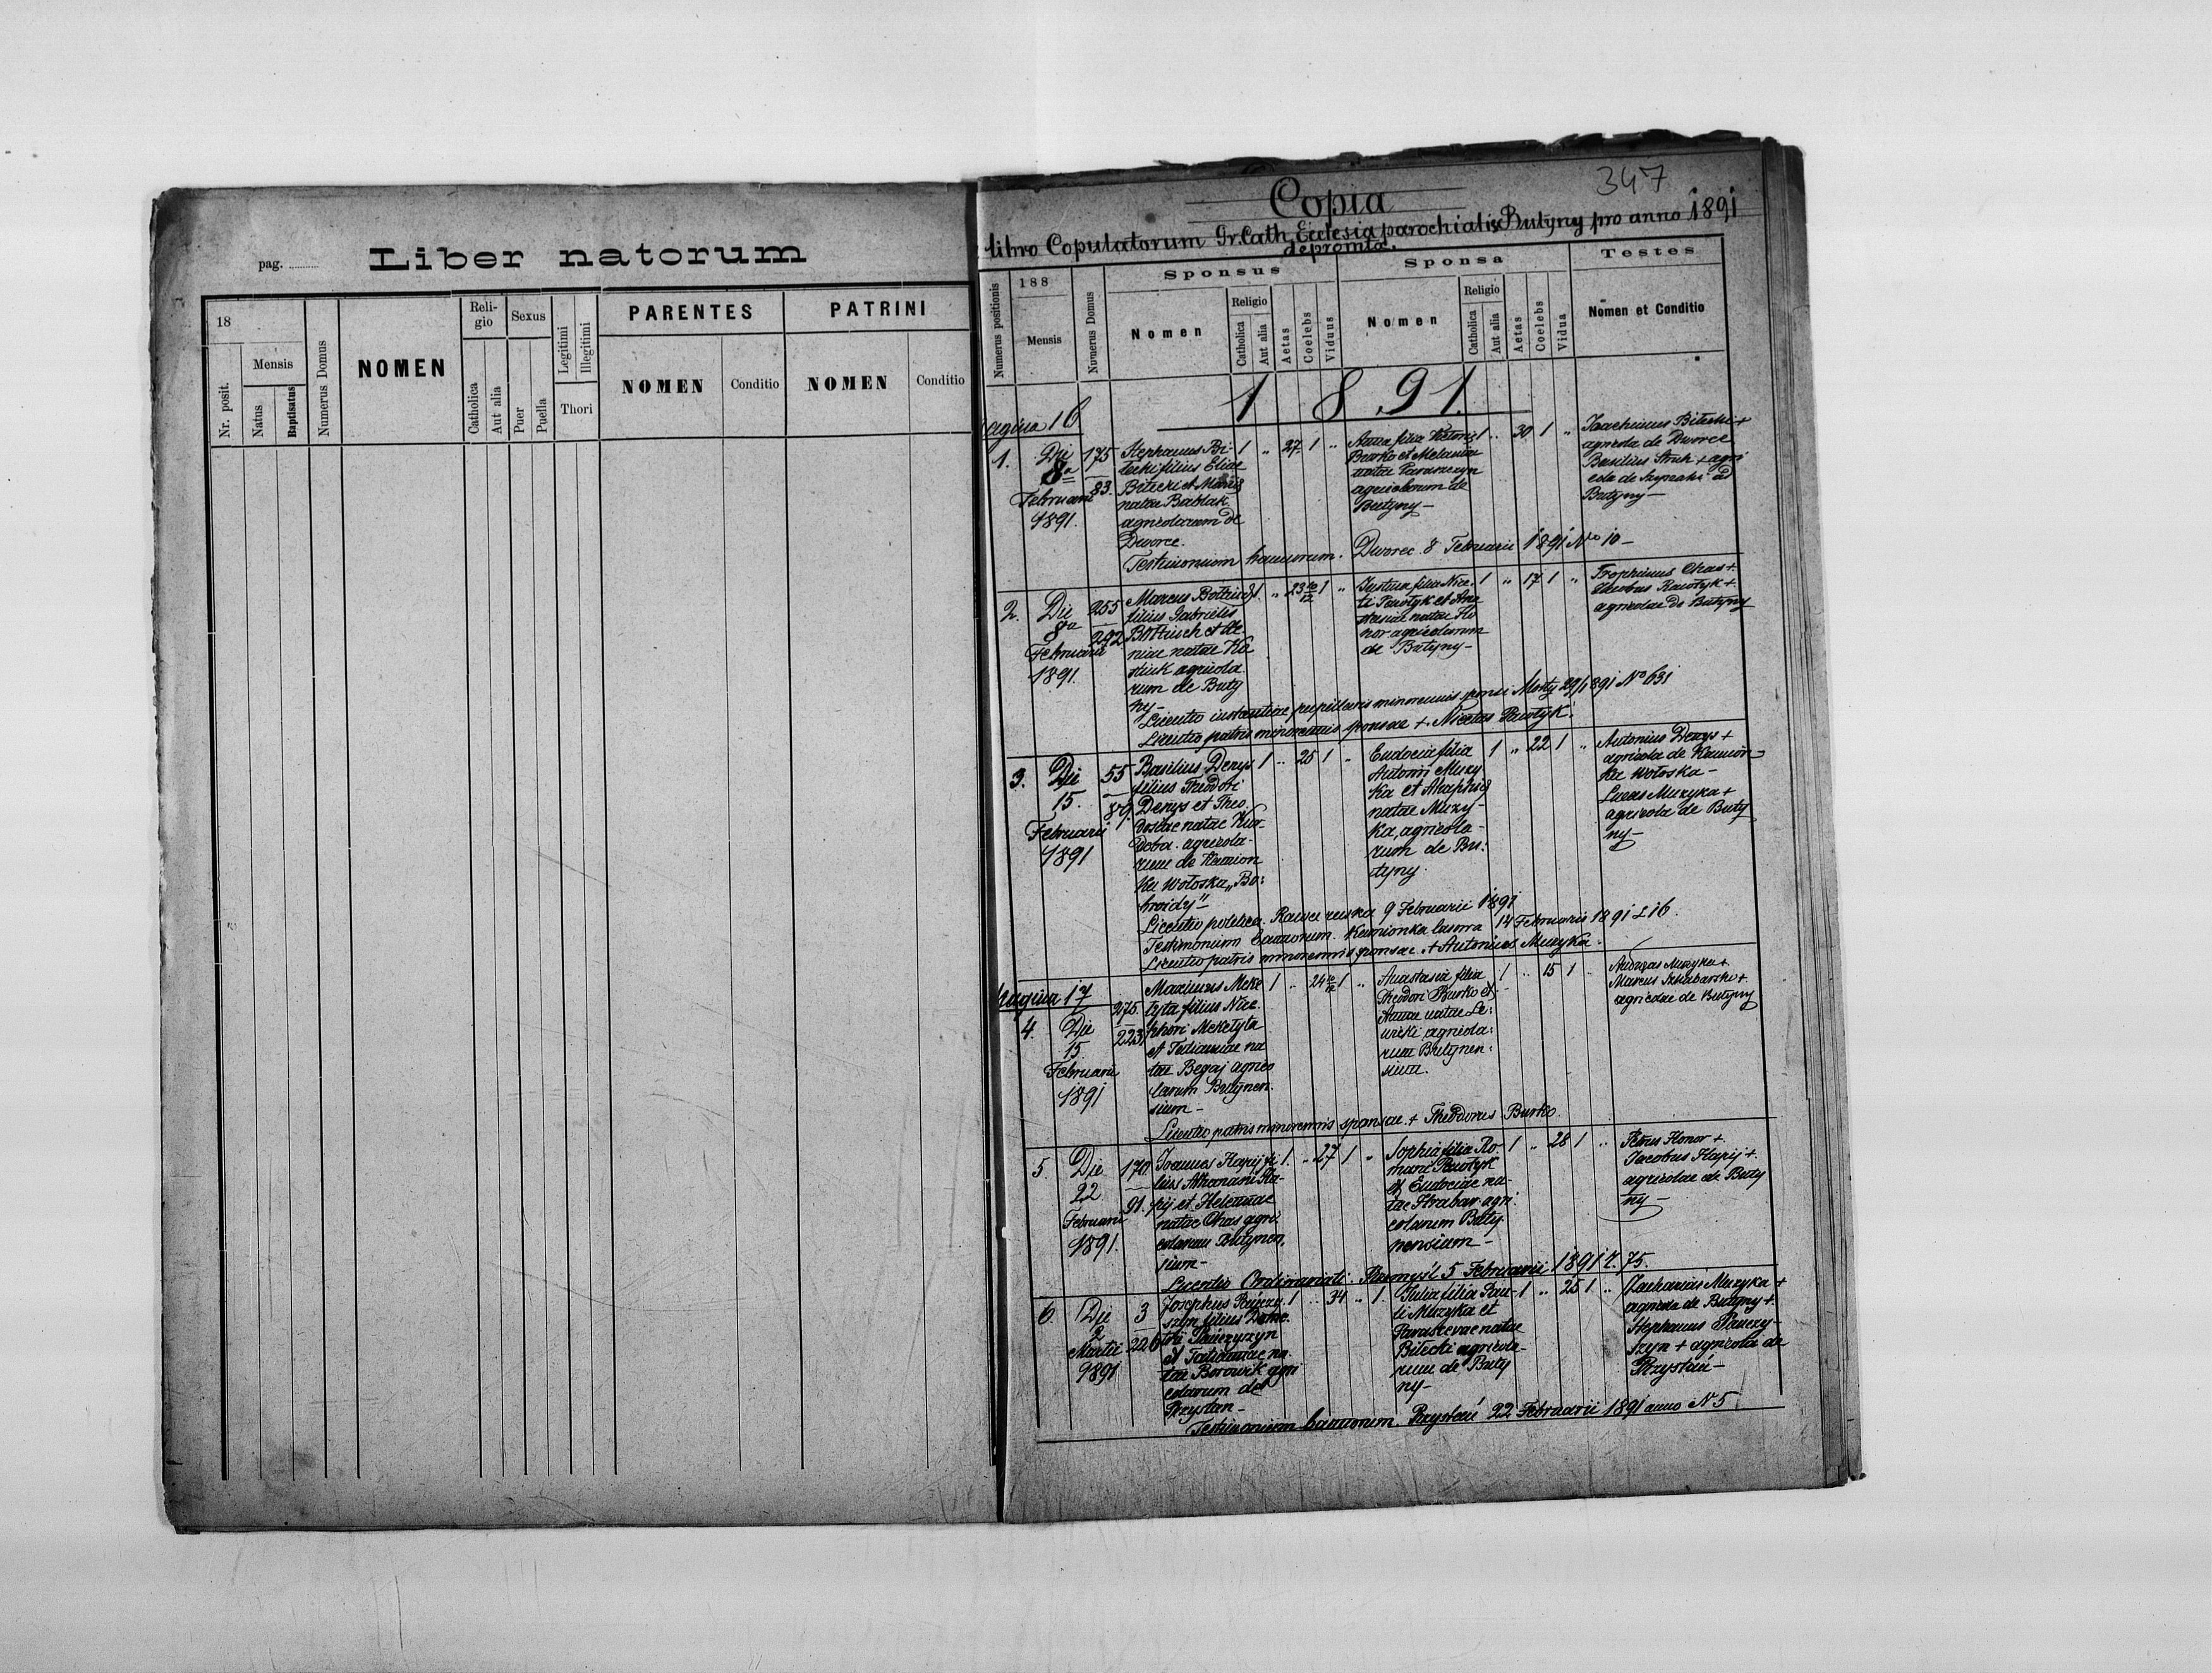 pag.
Liber natorum
18
Nr. posit.
Mensis
Natus
Baptisatus
Numerus Domus
NOMEN
Reli-
gio
Catholica
Aut alia
Sexus
Puer
Puella
Legitimi
Illegitimi
Thori
PARENTES
NOMEN
Conditio
PATRINI
NOMEN
Conditio
347
Copia
libro Copulatorum Gr. Cath. Ecclesia parochialis Butyny pro anno 1891
depromta.
Numerus positionis
188
Mensis
Numerus Domus
Sponsus
Nomen
Religio
Catholica
Aut alia
Aetas
Coelebs
Viduus
Sponsa
Nomen
Religio
Catholica
Aut alia
Aetas
Coelebs
Vidua
Testes
Nomen et Conditio
1891.
agina 16
1.
Die
8va
Februarii
1891.
175
83.
Stephanus Bi-
łecki filius Eliae
Biłecki et Mariae
natae Bablak
agricolarum de
Dworce.
1 „ 27 1 „
Anna filia
Burko et Melaniae
natae Paraszczyn
agricolarum de
Butyny –
1 „ 30 1 „
Joachimus Biłecki +
agricola de Dworce
Basilius + agri
cola de ad
Butyny –
Testimonium bannorum. Dworce 8 Februarii 1891 No 10 –
2.
Die
8va
Februarii
1891.
255
292
Marcus
filius Gabrielis
et Xe-
niae natae Ko
agricola
rum de Buty
ny –
1 „ 23 10/12 1 „
Justina filia Nice-
ti Pawłyk et Ana
stasiae natae Ho
nor agricolarum
de Butyny –
1 „ 17 1 „
Trophimus Ohas +
Jacobus Pawłyk +
agricolae de Butyny
Licentio instantiae pupillaris minorennis sponsi Mosty 29/1 891 No 631
Licentio patris minorennis sponsae + Nicetas Pawłyk.
3.
Die
15.
Februarii
1891
55
89.
Basilius Denys
filius Theodori
Denys et Theo
dosiae natae
agricola-
rum de Kamion
ka Wołoska „Bo-
broidy"
1 „ 25 1 „
Eudocia filia
Antonii Muzy
ka et Agaphiae
natae Muzy-
ka, agricola-
rum de Bu-
tyny
1 „ 22 1 „
Antonius Denys +
agricola de Kamion-
ka Wołoska –
Lucas Muzyka +
agricola de Buty
ny –
Licentio politica. Rawa ruska 9 Februarii 1891
Testimonium bannorum. Kamionka lasowa 14 Februarii 1891 L 16.
Licentio patris minorennis sponsae. + Antonius Muzyka.
Pagina 17
4.
Die
15.
Februarii
1891
275.
223
Maximus Meke
tyta filius Nice-
phori Meketyta
et Tatiannae na
tae Begaj agrico
larum Butynen-
sium –
1 „ 24 10/12 1 „
Anastasia filia
Theodori Burko et
Annae natae Le-
wicki agricola-
rum Butynen-
sium.
1 „ 15 1 „
Andreas Muzyka +
Marcus +
agricolae de Butyny
Licentio patris minorennis sponsae. + Theodorus Burko
5
Die
22
Februarii
1891.
170.
91.
Joannes Hapij fi
lius Athanasii Ha-
pij et Helennae
natae Ohas agri
colarum Butynen.
sium –
1 „ 27 1 „
Sophia filia Ro-
mani Pawłyk
et Eudociae na-
tae Hrabar agri
colarum Buty
nensium –
1 „ 28 1 „
Petrus Honor +.
Jacobus Hapij +.
agricolae de Buty
ny –
Licentio Ordinariati. Przemyśl 5 Februarii 1891 Z. 75.
6.
Die
2
Martii
1891
3
226
Josephus Pańczy
szyn filius Deme-
trii Pańczyszyn
et Tatiannae na
tae Borowik agri
colarum de
Przystań –
1 „ 34 „ 1.
Julia filia Pau-
li Muzyka et
Parascevae natae
Biłecki agricola-
rum de Buty
ny –
1 „ 25 1 „
Zacharias Muzyka +
agricola de Butyny +.
Stephanus Pańczy-
szyn + agricola de
Przystań –
Testimonium bannorum. Przystań 22 Februarii 1891 anno N 5